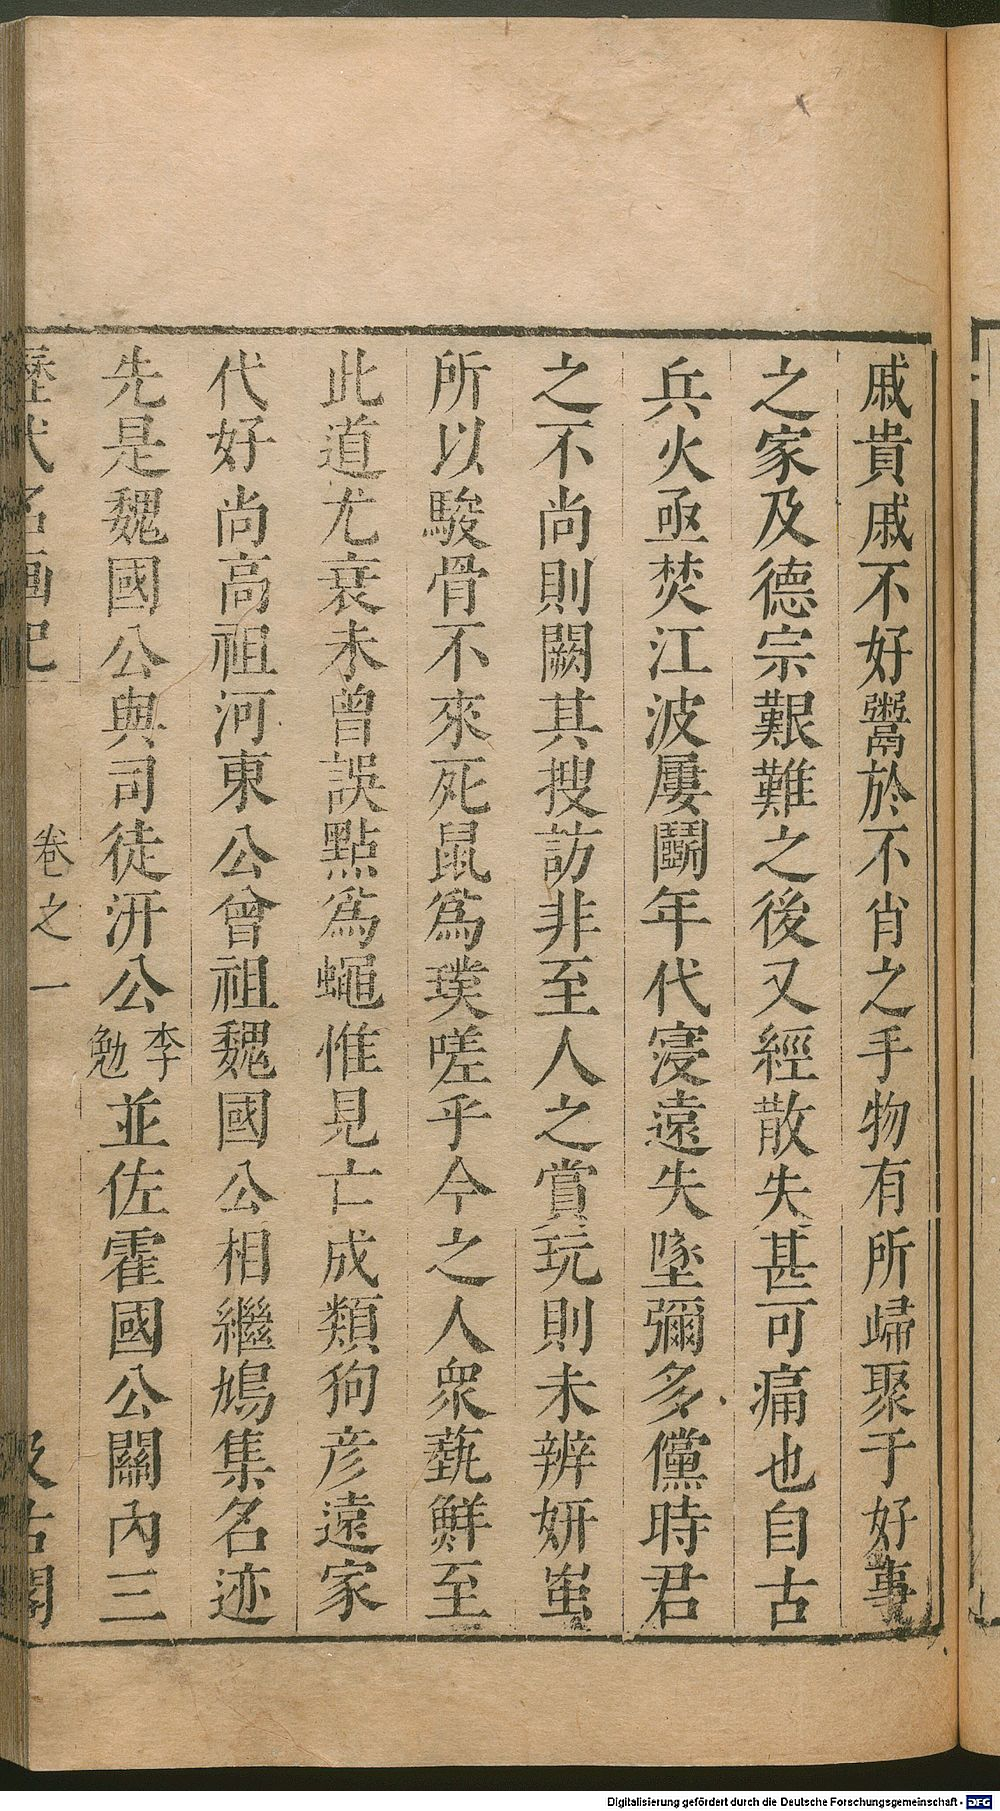 戚貴戚不好鬻於不肖之手物有所歸聚于好事
之家及德宗艱難之後又經散失甚可痛也自古
兵火亟焚江波屢鬭年代寖遠失墜彌多儻時君
之不尚則闕其搜訪非至人之賞玩則未辨妍蚩
所以駿骨不來死鼠爲璞嗟乎今之人衆藝鮮至
此道尤衰未曾誤點爲蠅惟見亡成類狗彦遠家
代好尚高祖河東公曾祖魏國公相繼鳩集名迹
先是魏國公與司徒汧公李勉並佐霍國公關內三
歷代名画記 卷之一 汲古閣
Digitalisierung gefördert durch die Deutsche Forschungsgemeinschaft - DFG